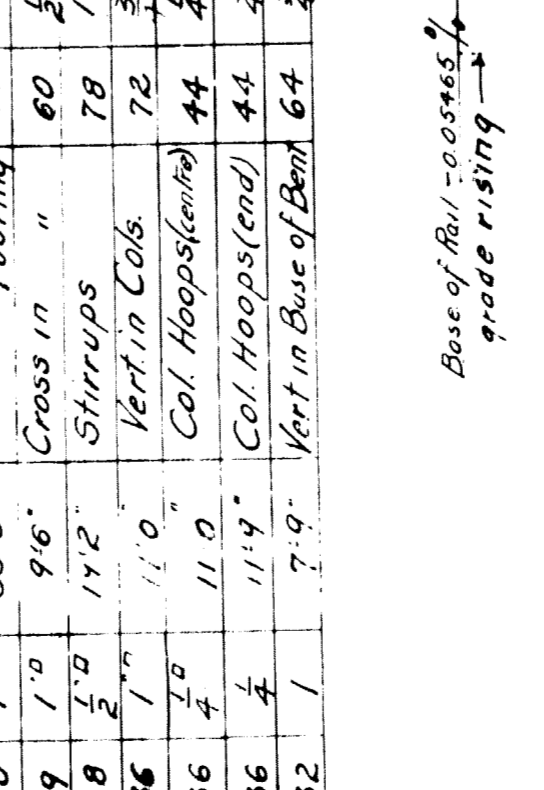 9 1"□ 9'-6" Cross in " 60
8 1/2"□ 14'2" Stirrups 78
1"□ 11'0" Vert. in Cols. 72
1/4"□ 11'0" Col. Hoops (centre) 44
1/4 11'-9" Col. Hoops (end) 44
1 7'-9" Vert in Base of Bent 64
Base of Rail -0.05465%
grade rising →